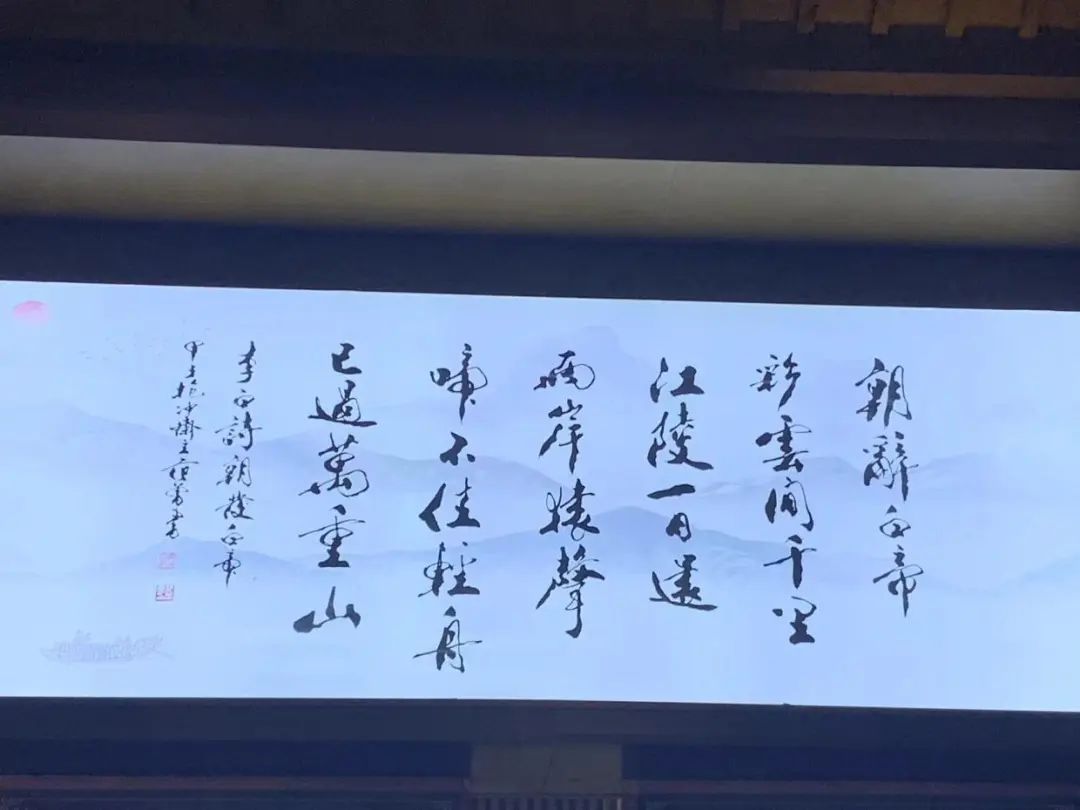 朝辭白帝
彩雲間千里
江陵一日還
兩岸猿聲
啼不住輕舟
已過萬重山
李白詩朝發白帝